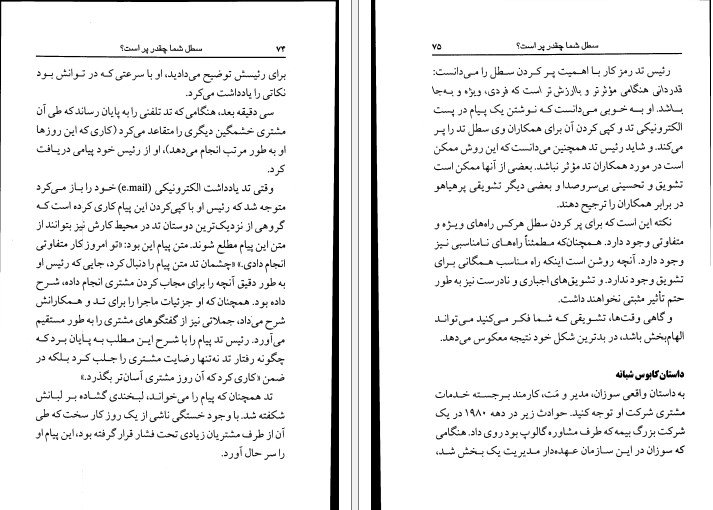 سطل شما چقدر پر است؟ ۷۴
برای رئیسش توضیح می‌دادید، او با سرعتی که در توانش بود
نکاتی را یادداشت می‌کرد.
سی دقیقه بعد، هنگامی که تد تلفنی را به پایان رساند که طی آن
مشتری خشمگین دیگری را متقاعد می‌کرد (کاری که این روزها
او به طور مرتب انجام می‌دهد)، او از رئیس خود پیامی دریافت
کرد.
وقتی تد یادداشت الکترونیکی (e.mail) خود را باز می‌کرد
متوجه شد که رئیس او با کپی‌کردن این پیام کاری کرده است که
گروهی از نزدیک‌ترین دوستان تد در محیط کارش نیز بتوانند از
متن این پیام مطلع شوند. متن پیام این بود: «تو امروز کار متفاوتی
انجام دادی.» «چشمان تد متن پیام را دنبال کرد، جایی که رئیس او
به طور دقیق آنچه را برای مجاب کردن مشتری انجام داده، شرح
داده بود. همچنان که او جزئیات ماجرا را برای تد و همکارانش
شرح می‌داد، جملاتی نیز از گفتگوهای مشتری را به طور مستقیم
می‌آورد. رئیس تد پیام را با شرح این مطلب به پایان برد که
چگونه رفتار تد نه‌تنها رضایت مشتری را جلب کرد بلکه در
ضمن «کاری کرد که آن روز مشتری آسان‌تر بگذرد.»
تد همچنان که پیام را می‌خواند، لبخندی گشاده بر لبانش
شکفته شد. با وجود خستگی ناشی از یک روز کار سخت که طی
آن از طرف مشتریان زیادی تحت فشار قرار گرفته بود، این پیام او
را سر حال آورد.
سطل شما چقدر پر است؟ ۷۵
رئیس تد رمز کار با اهمیت پر کردن سطل را می‌دانست:
قدردانی هنگامی مؤثرتر و باارزش‌تر است که فردی، ویژه و به‌جا
باشد. او به خوبی می‌دانست که نوشتن یک پیام در پست
الکترونیکی تد و کپی کردن آن برای همکاران وی سطل تد را پر
می‌کند. و شاید رئیس تد همچنین می‌دانست که این روش ممکن
است در مورد همکاران تد مؤثر نباشد. بعضی از آنها ممکن است
تشویق و تحسینی بی‌سروصدا و بعضی دیگر تشویقی پرهیاهو
در برابر همکاران را ترجیح دهند.
نکته این است که برای پر کردن سطل هرکس راه‌های ویژه و
متفاوتی وجود دارد. همچنان‌که مطمئناً راه‌های نامناسبی نیز
وجود دارد. آنچه روشن است اینکه راه مناسب همگانی برای
تشویق وجود ندارد. و تشویق‌های اجباری و نادرست نیز به طور
حتم تأثیر مثبتی نخواهند داشت.
و گاهی وقت‌ها، تشویقی که شما فکر می‌کنید می‌تواند
الهام‌بخش باشد، در بدترین شکل خود نتیجه معکوس می‌دهد.
داستان کابوس شبانه
به داستان واقعی سوزان، مدیر و مَت، کارمند برجسته خدمات
مشتری شرکت او توجه کنید. حوادث زیر در دهه ۱۹۸۰ در یک
شرکت بزرگ بیمه که طرف مشاوره گالوپ بود روی داد. هنگامی
که سوزان در این سازمان عهده‌دار مدیریت یک بخش شد،